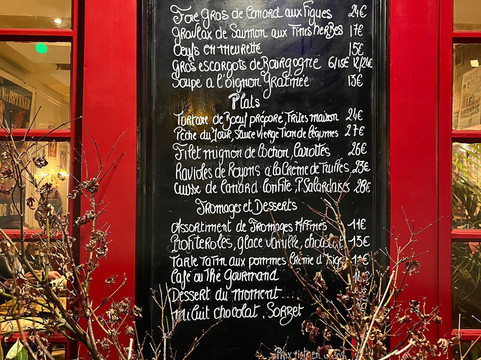 Foie Gras de Canard aux Figues 24€
Gravlax de Saumon aux Fines herbes 17€
Oeufs en meurette 15€
Gros escargots de Bourgogne 6/15€ 12/24€
Soupe a l'oignon Gratinée 13€
Plats
Tartare de Boeuf préparé, Frites maison 24€
Pêche du Jour, Sauce Vierge Tian de légumes 27€
Filet mignon de Cochon, Carottes 26€
Ravioles de Royans a la Crème de Truffes 23€
Cuisse de Canard Confite, P. Salardaises 28€
Fromages et Desserts
Assortiment de Fromages Affinés 11€
Profiteroles, glace vanille, chocolat 15€
Tarte Tatin aux pommes Crème 11€
Café ou Thé Gourmand
Dessert du moment...
mi Cuit chocolat, Sorbet